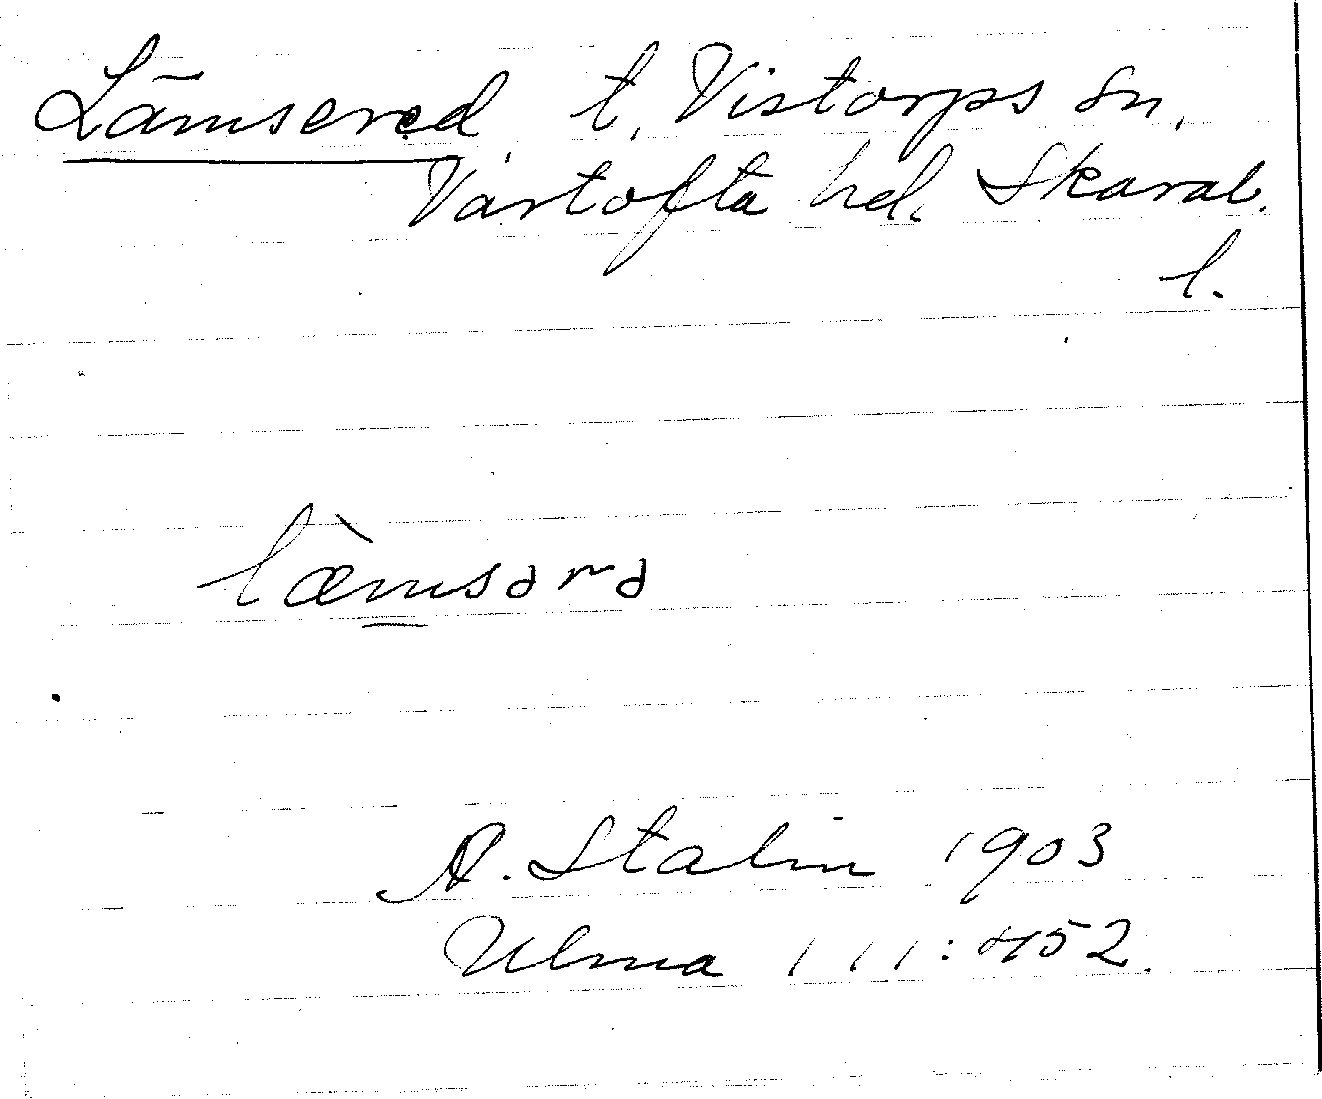 Lämsered t. Vistorps sn,
Vartofta hd. Skarab.
l.
læ̀msərə
A. Stalin 1903
Ulma 111:452.